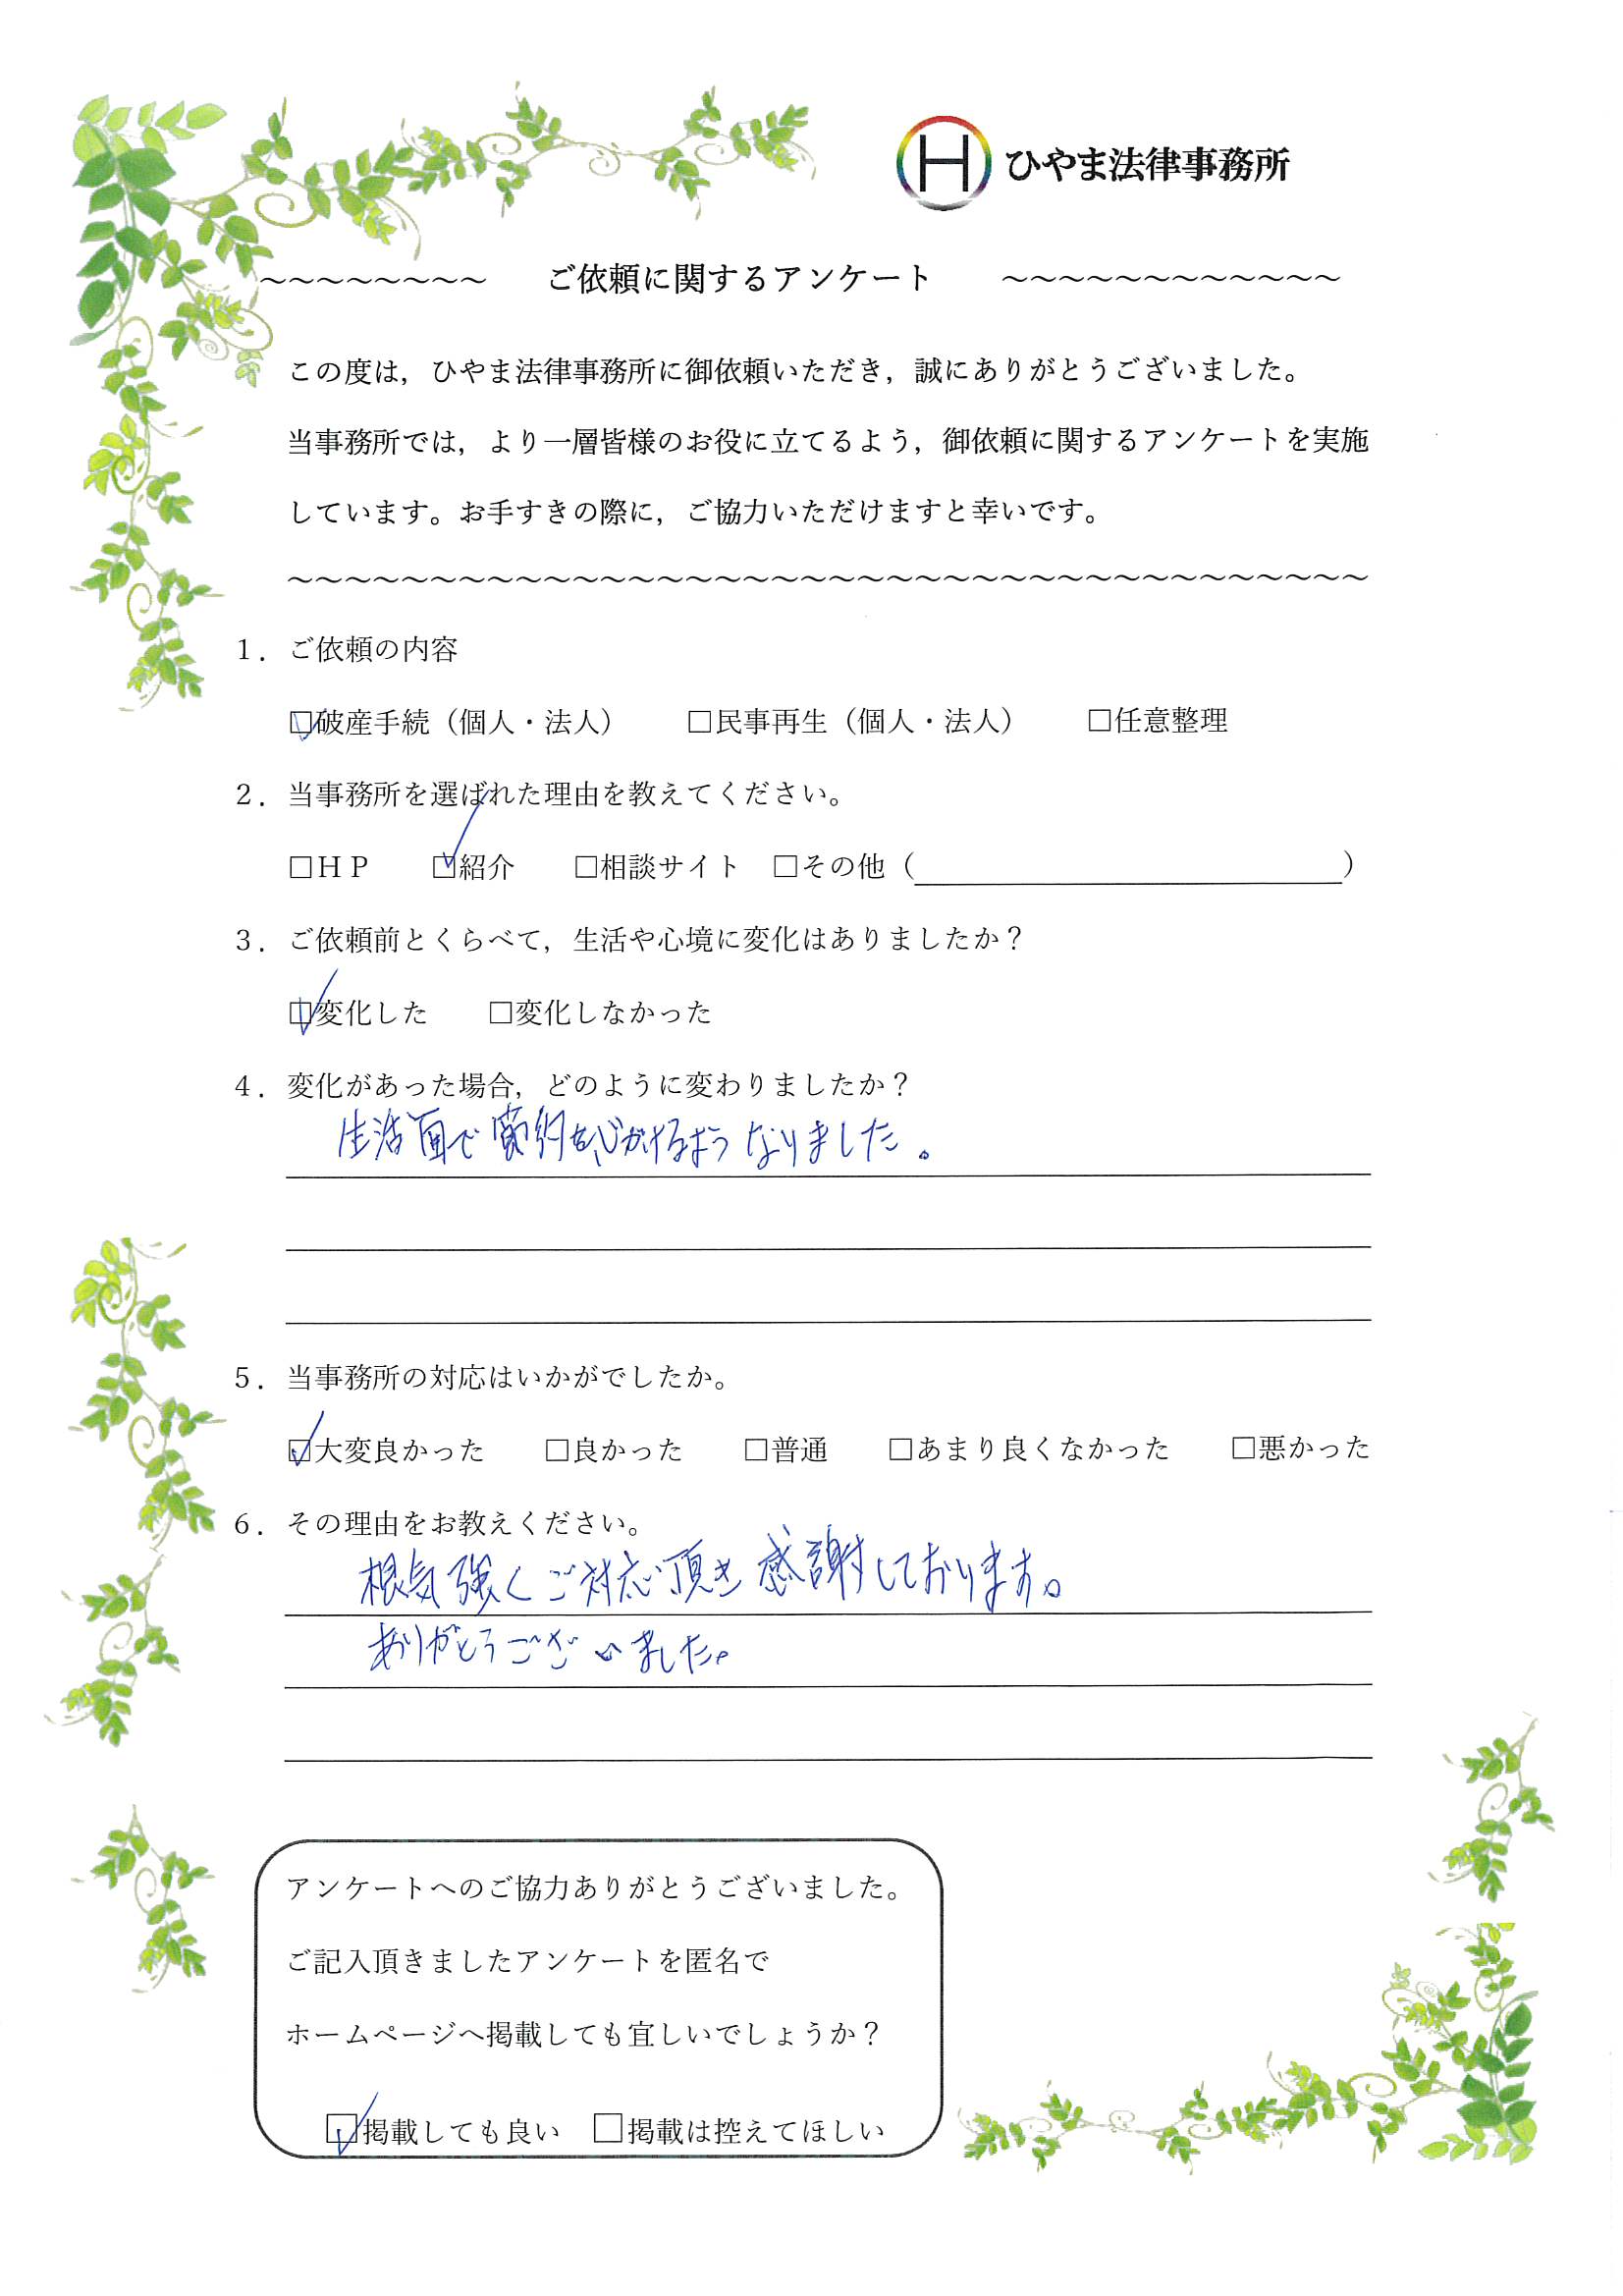 H ひやま法律事務所
~~~~~~~~ ご依頼に関するアンケート ~~~~~~~~~~~~
この度は，ひやま法律事務所に御依頼いただき，誠にありがとうございました。
当事務所では，より一層皆様のお役に立てるよう，御依頼に関するアンケートを実施
しています。お手すきの際に，ご協力いただけますと幸いです。
~~~~~~~~~~~~~~~~~~~~~~~~~~~~~~~~~~~~~~
１．ご依頼の内容
☑破産手続（個人・法人） □民事再生（個人・法人） □任意整理
２．当事務所を選ばれた理由を教えてください。
□ＨＰ ☑紹介 □相談サイト □その他（ ）
３．ご依頼前とくらべて，生活や心境に変化はありましたか？
☑変化した □変化しなかった
４．変化があった場合，どのように変わりましたか？
生活面で節約を心がけるようなりました。
５．当事務所の対応はいかがでしたか。
☑大変良かった □良かった □普通 □あまり良くなかった □悪かった
６．その理由をお教えください。
根気強くご対応頂き感謝しております。
ありがとうございました。
アンケートへのご協力ありがとうございました。
ご記入頂きましたアンケートを匿名で
ホームページへ掲載しても宜しいでしょうか？
☑掲載しても良い □掲載は控えてほしい